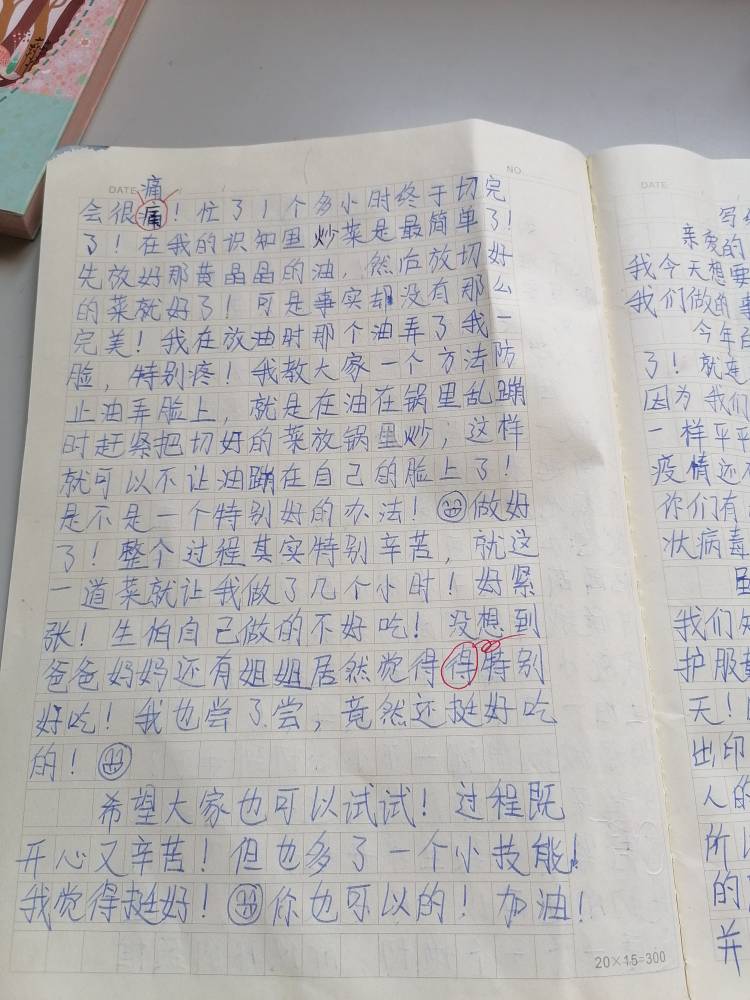 DATE
NO
痛
会很痛！忙了1个多小时终于切完
了！在我的识知里炒菜是最简单了！
先放好那黄晶晶的油，然后放切好
的菜就好了！可是事实却没有那么
完美！我在放油时那个油弄了我一
脸，特别疼！我教大家一个方法防
止油弄脸上，就是在油在锅里乱蹦
时赶紧把切好的菜放锅里炒，这样
就可以不让油蹦在自己的脸上了！
是不是一个特别好的办法！做好
了！整个过程其实特别辛苦，就这
一道菜就让我做了几个小时！好紧
张！生怕自己做的不好吃！没想到
爸爸妈妈还有姐姐居然觉得得特别
好吃！我也尝了尝，竟然还挺好吃
的！
希望大家也可以试试！过程既
开心又辛苦！但也多了一个小技能！
我觉得挺好！你也可以的！加油！
20×15=300
DATE
亲爱的
我今天想要
我们做的事
今年
了！就是
因为我们
一样平平
疫情还
诈们有
状病毒
我们
护服
天！
出印
人的
所以
的
并